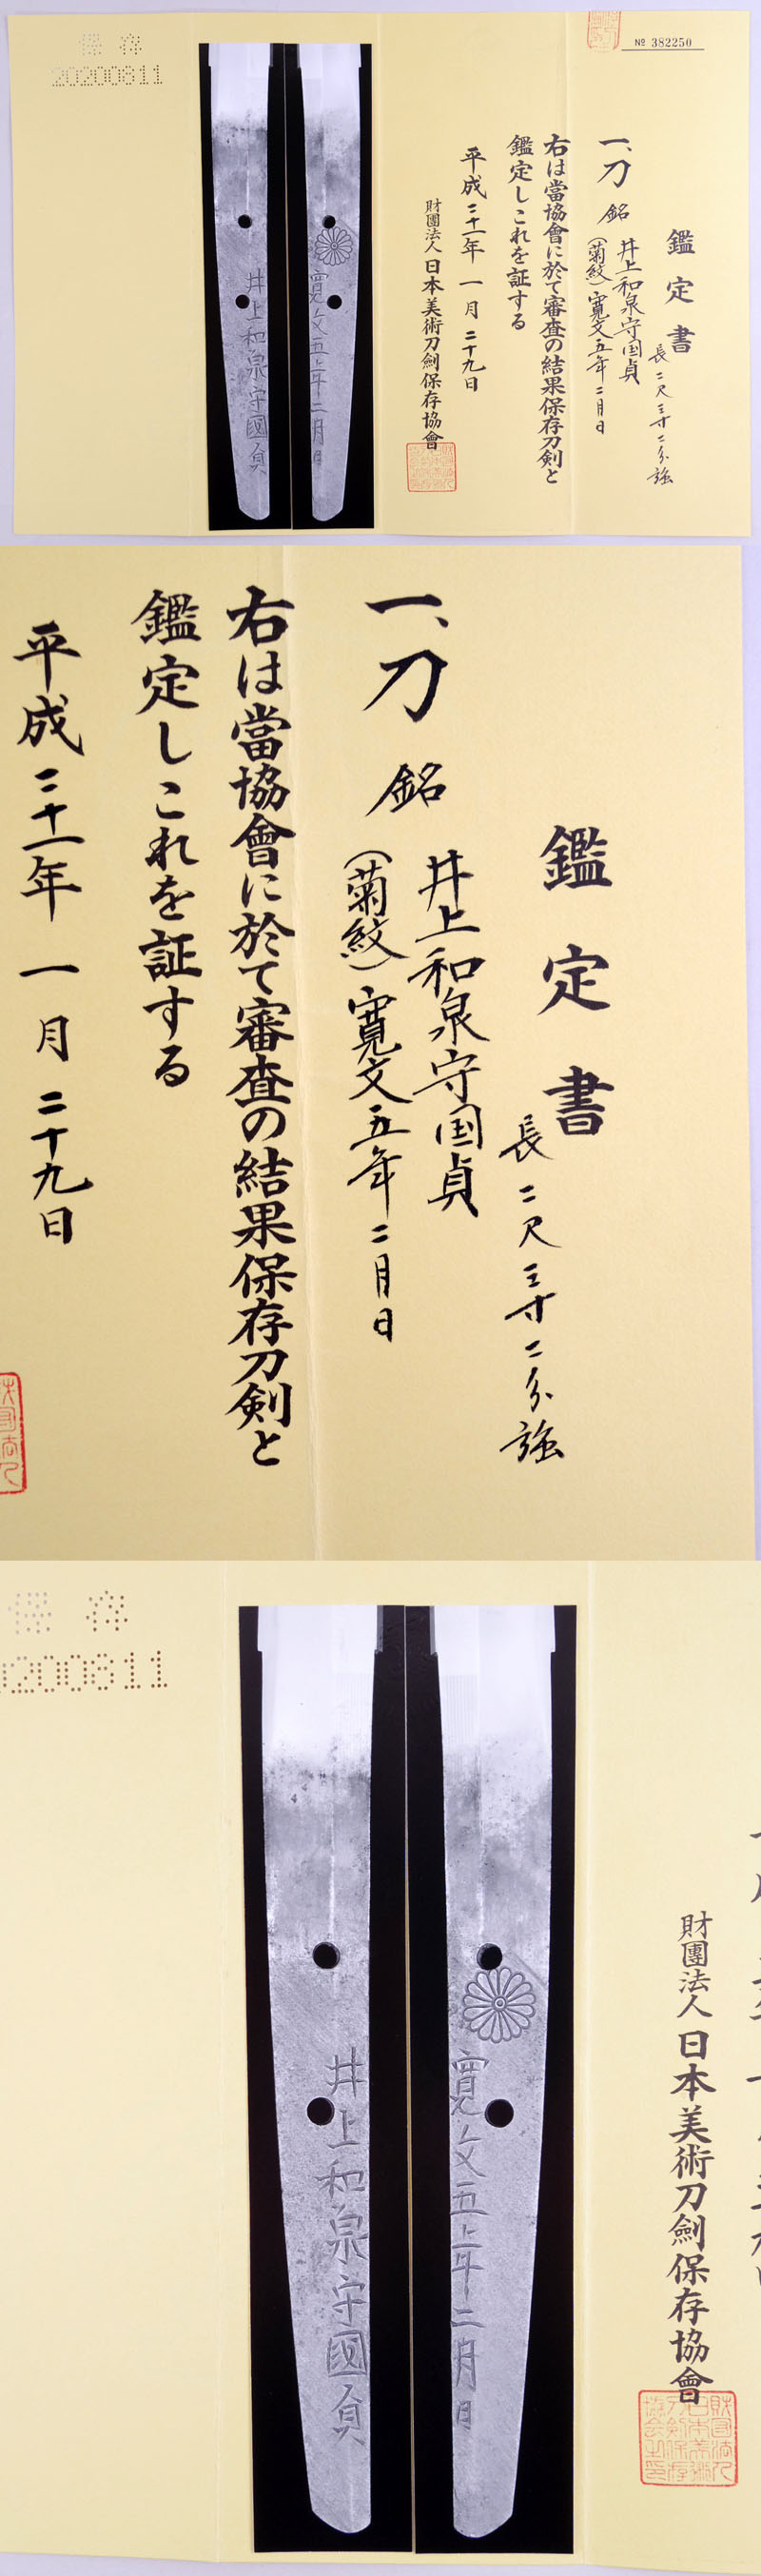 保存
20200811
№ 382250
鑑定書
長二尺三寸二分強
一、刀 銘
井上和泉守国貞
(菊紋)寛文五年二月日
右は當協會に於て審査の結果保存刀剣と
鑑定しこれを証する
平成二十一年 一月 二十九日
財團法人 日本美術刀劍保存協會
井上和泉守國貞
寛文五年二月日
鑑定書
長二尺三寸二分強
一、刀 銘
井上和泉守国貞
(菊紋)寛文五年二月日
右は當協會に於て審査の結果保存刀剣と
鑑定しこれを証する
平成二十一年 一月 二十九日
保存
0200811
井上和泉守國貞
寛文五年二月日
財團法人 日本美術刀劍保存協會